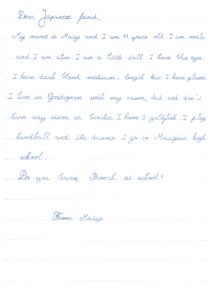 Dear Japanese friend,
My name is and I am 11 years old I am male
and I am slim. I am a little tall I have blue eyes.
I have dark blond medium-length hair I have glasses
I live in Gradignan with my mum, dad and don't
have any sister or brother I have 1 goldfish. I play
handball and the drums. I go to high
school.
Do you learn French at school?
From